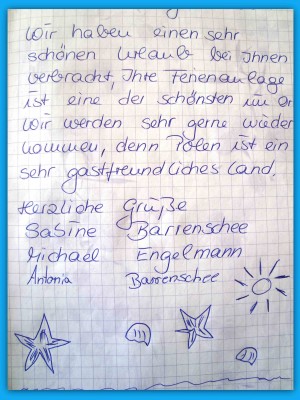 Wir haben einen sehr
schönen Urlaub bei Ihnen
verbracht, Ihre Ferienanlage
ist eine der schönsten im Or
Wir werden sehr gerne wieder
kommen, denn Polen ist ein
sehr gastfreundliches Land.
Herzliche Grüße
Sabine Barrenschee
Michael Engelmann
Antonia Barrenschee